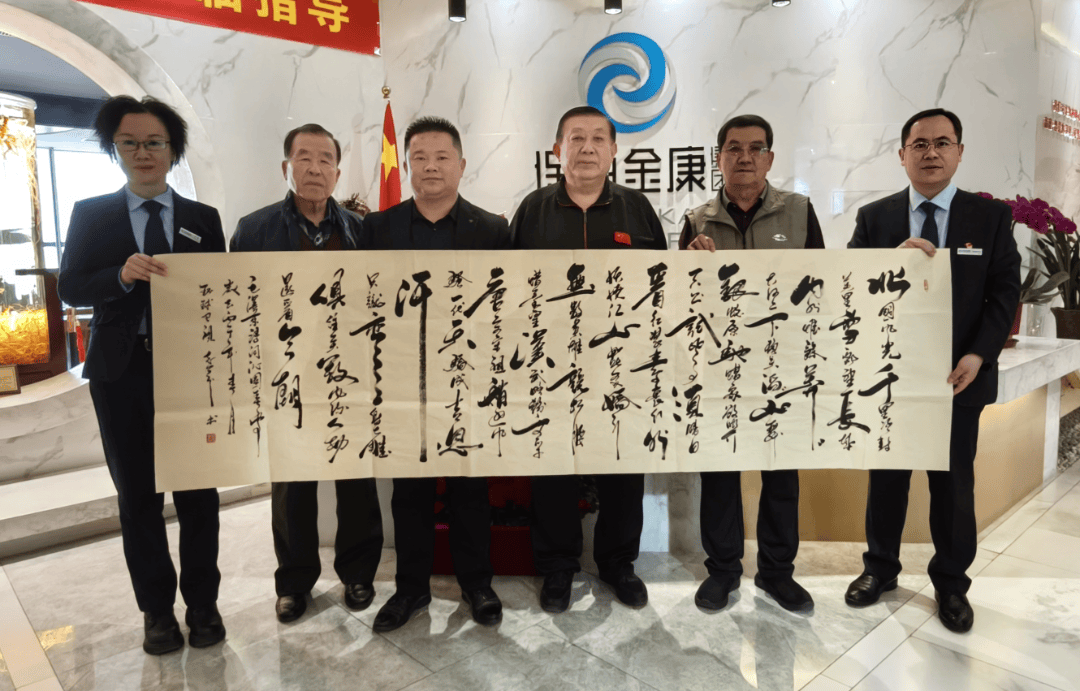 临指导
金康
北国风光千里冰封
万里雪飘望长城
内外惟余莽莽
大河上下顿失滔滔山舞
银蛇原驰蜡象欲与
天公试比高须晴日
看红装素裹分外
妖娆江山如此多娇引
无数英雄竞折腰
惜秦皇汉武略输文采
唐宗宋祖稍逊风
骚一代天骄成吉思
汗
只识弯弓射大雕
俱往矣数风流人物
还看今朝
毛泽东诗词沁园春雪